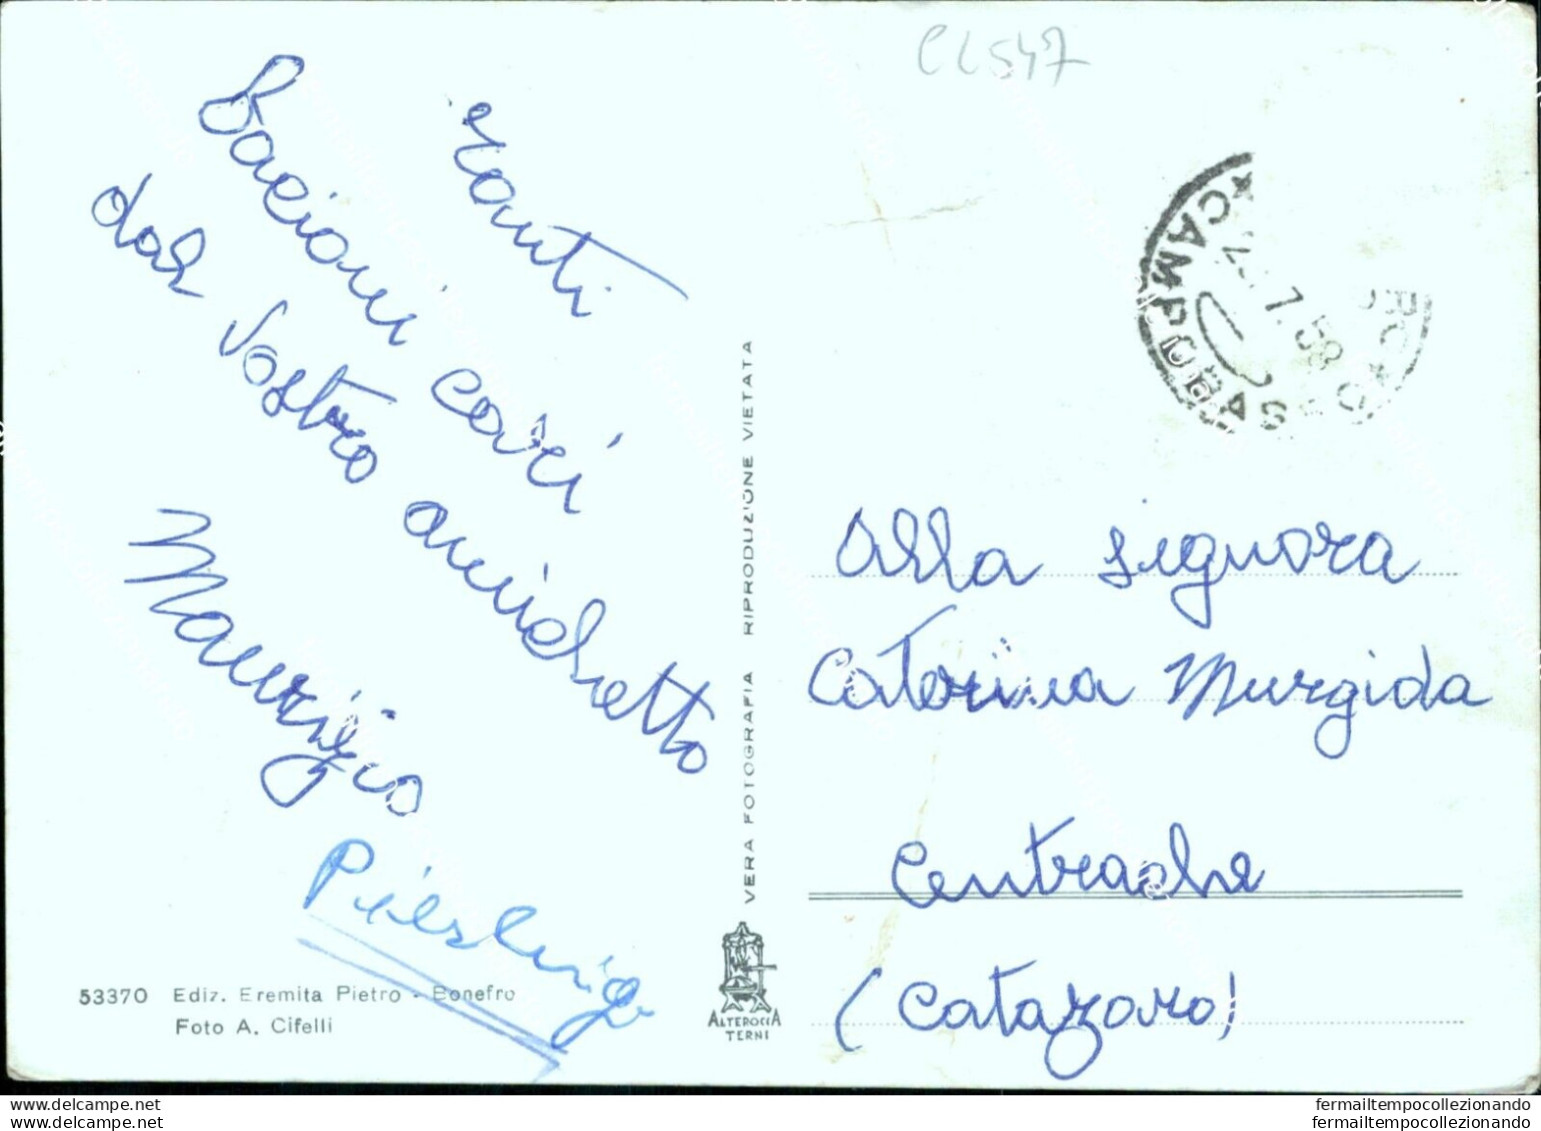 CL547
Tanti
Bacioni cari
dal vostro amichetto
Maurizio
Pierluigi
53370 Ediz. Eremita Pietro - Bonefro
Foto A. Cifelli
VERA FOTOGRAFIA RIPRODUZIONE VIETATA
ALTEROCCA
TERNI
CAMPOBASSO
7.58
Alla signora
Caterina Murgida
Centrache
(Catazaro)
fermailtempocollezionando
fermailtempocollezionando
fermailtempocollezionando
fermailtempocollezionando